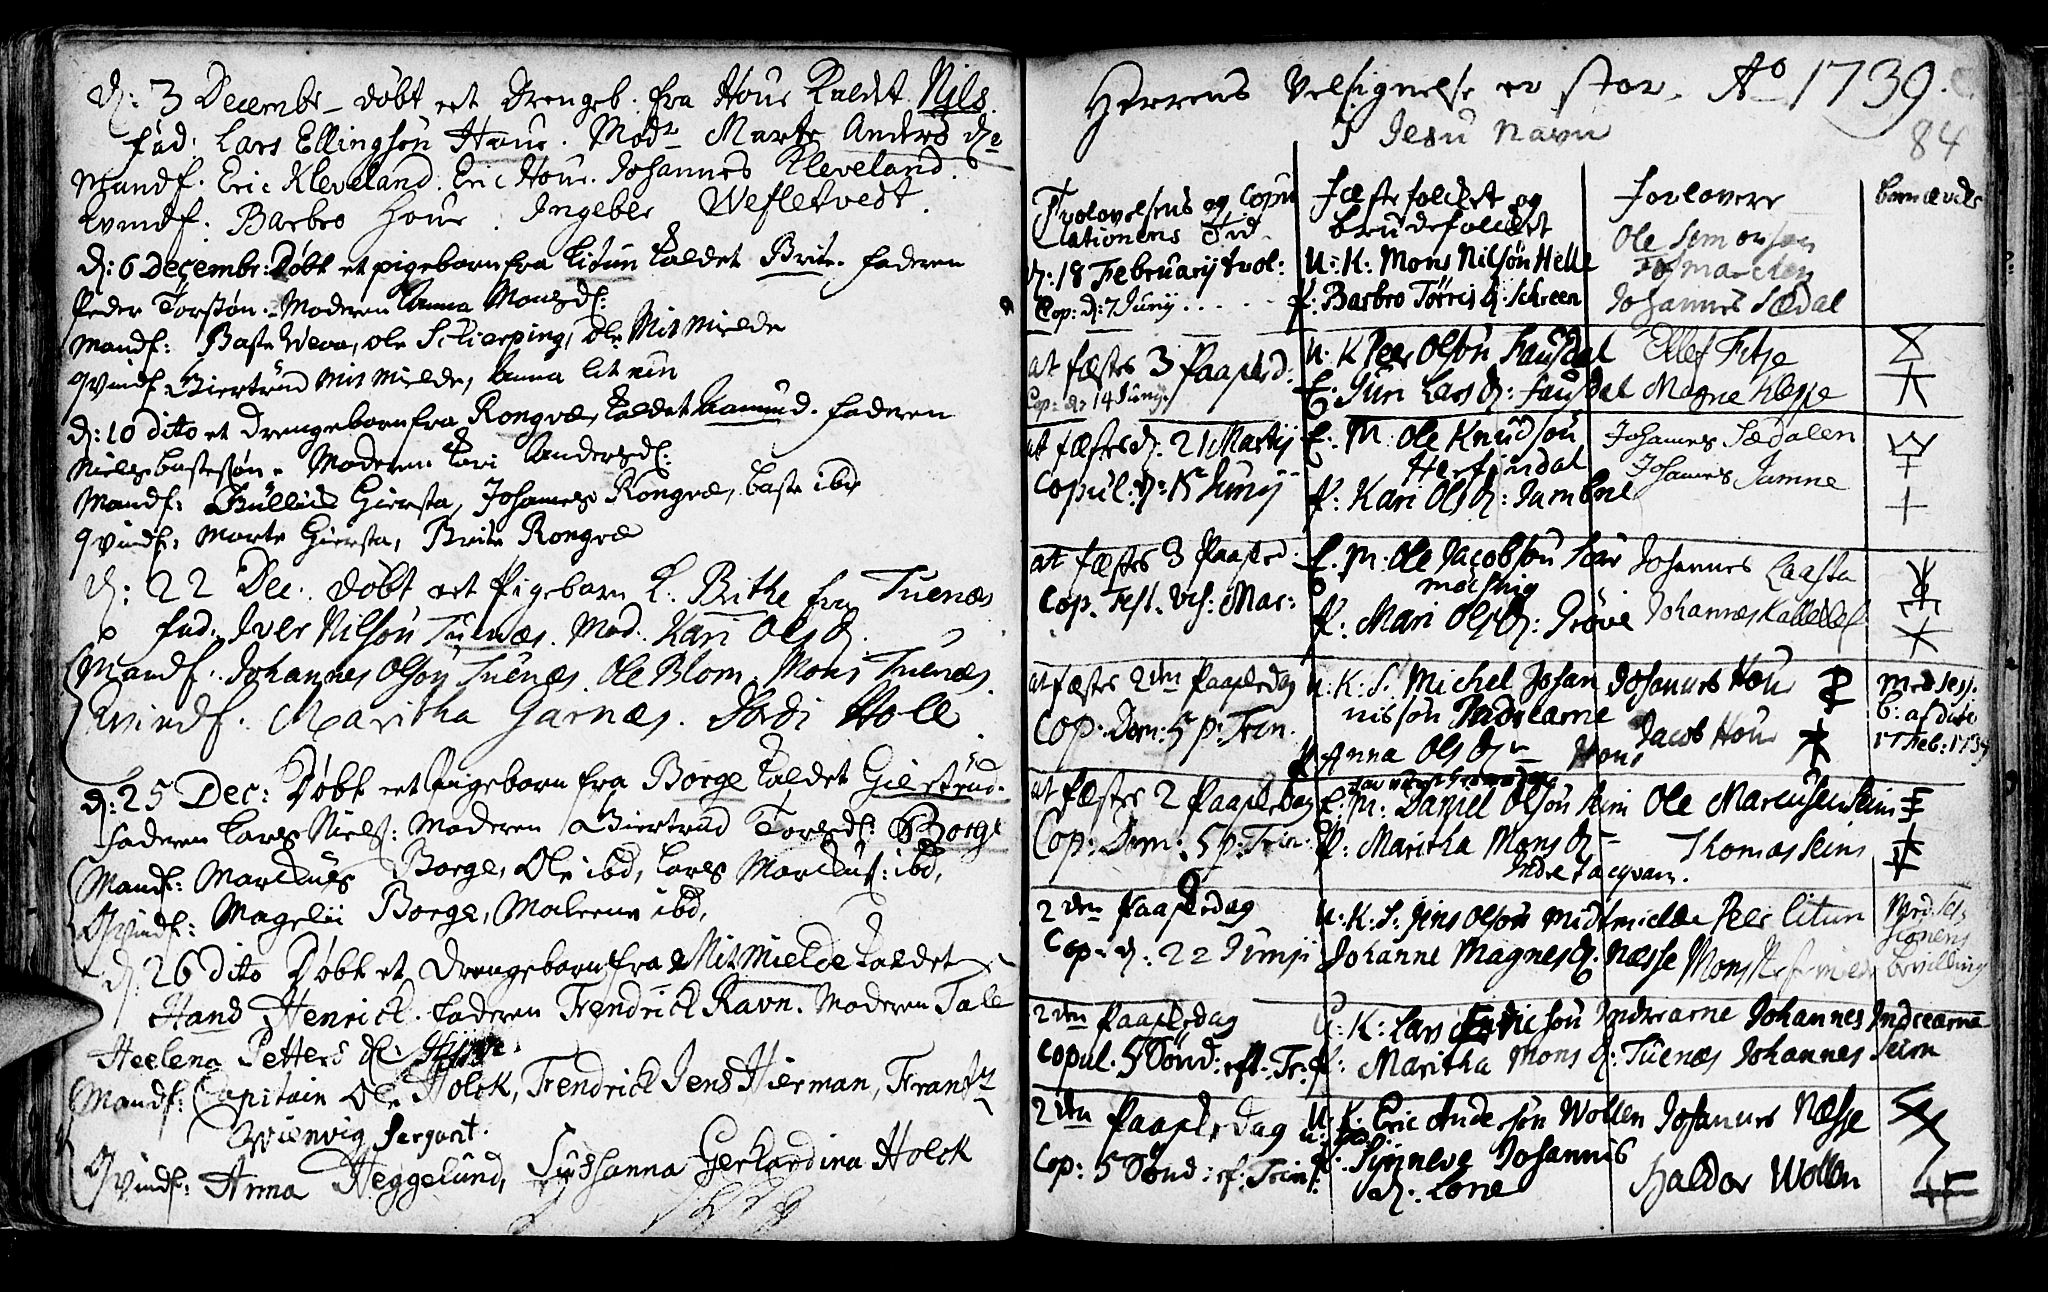 d: 3 Decembr – døbt eet Drengeb. fra Houe kaldet Nils.
fad: Lars Ellingsøn Houe. Modr Marte Anders dr
Mandf. Eric Kleveland. Eric Houe. Johannes Kleveland.
Kvindf: Barbro Houe. Ingebor Wefletvedt.
d: 6 Decembr: Døbt et pigebarn fra Litun kaldet Brite. faderen
Peder Torstøn. Moderen Anna Monsd:
Mandf: Baste, Ole Schierping, Ole Mitmielde
Qvindf: Biertrud Mitmielde, Anna litun
d: 10 dito et Drengebarn fra Rongvæ, kaldet Aamund. faderen
Niels bastesøn. Moderen kari Andersd:
Mandf: Gullus Giersta, Johannes Rongvæ, baste ibid
Qvindf: Marte Giersta, Brite Rongvæ
d: 22 Dec. døbt eet Pigebarn k. Brithe fra Tuenæs
fad. Iver Nilsøn Tuenæs. Mod. Kari Ols d.
Mandf. Johannes Olsøn Tuenæs. Ole Blom. Mons Tuenæs.
Kvindf. Maritha Garnæs. Jordi Hole
d: 25 Dec: Døbt eet Pigebarn fra Borge kaldet Giertrud.
faderen Lars Niels: Moderen Biertrud Torsd: Borge
Mandf: Marckus Borge, Ole ibd, Lars Marckus: ibd,
Qvindf: Mageli Borge, Malene ibd,
d: 26 dito Døbt et Drengebarn fra Mitmielde kaldet
Hans Henrich. faderen Frendrich Ravn. Moderen Tale
Heelena Petters d:
Mandf: Capitain Ole Holck, Frendrich Jens Hierman, Frantz
Wienvig Sergant.
Qvindf: Anna Heggelund, Sussanna Gerhardina Holck
Herrens Velsignelse er stor. Ao 1739.
J Jesu Navn
84
Trolovelsens og Copu
lationens Tid
Fæstefolcket og
brudefolcket
Forlovere
bomærcke
d. 18 Februarij trol:
Cop: d: 7 Junij
U: K: Mons Nilsøn Helle
P: Barbro Tørris d: Schreen
Ole Simonsøn
Johannes Sædal
at fæstes 3 Paaskd.
Cop: d: 14 Junij
U: K Peer Olsøn Hausdal
E: Guri Lars d: Hausdal
Ellef Fitje
Magne Kleppe
at fæstes d: 21 Martij
Copul: d: 15 Junij
E: M: Ole Knudsøn
Herfindal
P: Kari Ols d: Jambne
Johannes Sædalen
Johannes Jamne
at fæstes 3 Paasked.
Cop. Fest. Vis: Mar:
E. M: Ole Jacobsøn
P: Mari Ols d: Grøve
Johannes Laasta
Johannes Kallekleef
at fæstes 2den Paaskedag
Cop: Dom: 5 p: Trin.
U: K: S. Michel Johan
nissøn Indrearne
P Anna Ols dr Houe
Johannes Houe
Jacob Houe
Med sess.
b: af dato
17 Feb: 1739
at fæstes 2 Paaskedag
Cop: Dom: 5 p: Trin
E: M: Daniel Olsøn Seim
P: Maritha Mons d–
Indre tacqvam.
Ole Marcussen Seim
Thomas Seim
2den Paaskedag
Cop: d: 22 Junij
U: K: S. Jens Olsøn Midtmielde
Johanne Magnes d. Næsse
Peer Litun
Med Ses-
sionens
bevilling
2den Paaskedag
Copul. 5 Sønd: eft: Tr:
U: K: Lars Ericsøn Indrearne
P: Maritha Mons d: Tuenæs
Johannes Indrearne
Johannes Seim
2den Paaskedag
Cop: 5 Sønd: ef: Trin:
U: K: Eric Andersøn Wollen
P: Synneve Johannis
d: Lone
Johannes Næsse
Haldor Wollen